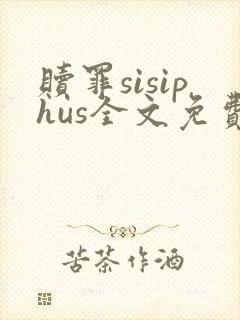 赎罪sisip
hus全文免费
苦茶作酒